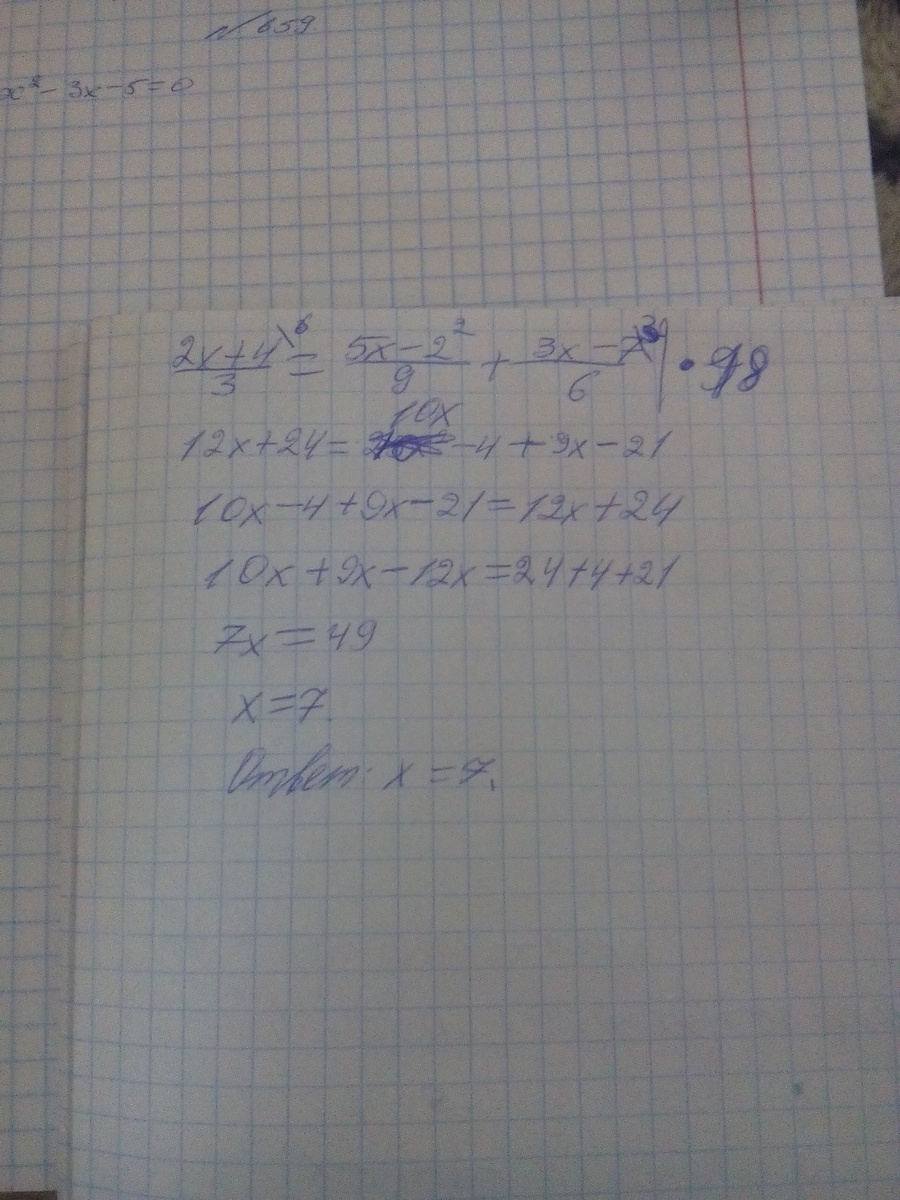 № 659
x² - 3x - 5 = 0
(2x+4)/3 \⁶ = (5x-2)/9 ² + (3x-7)/6 \³ | • 18
12x+24= 10x -4 +9x-21
10x-4+9x-21=12x+24
10x+9x-12x=24+4+21
7x=49
x=7
Ответ: x=7.